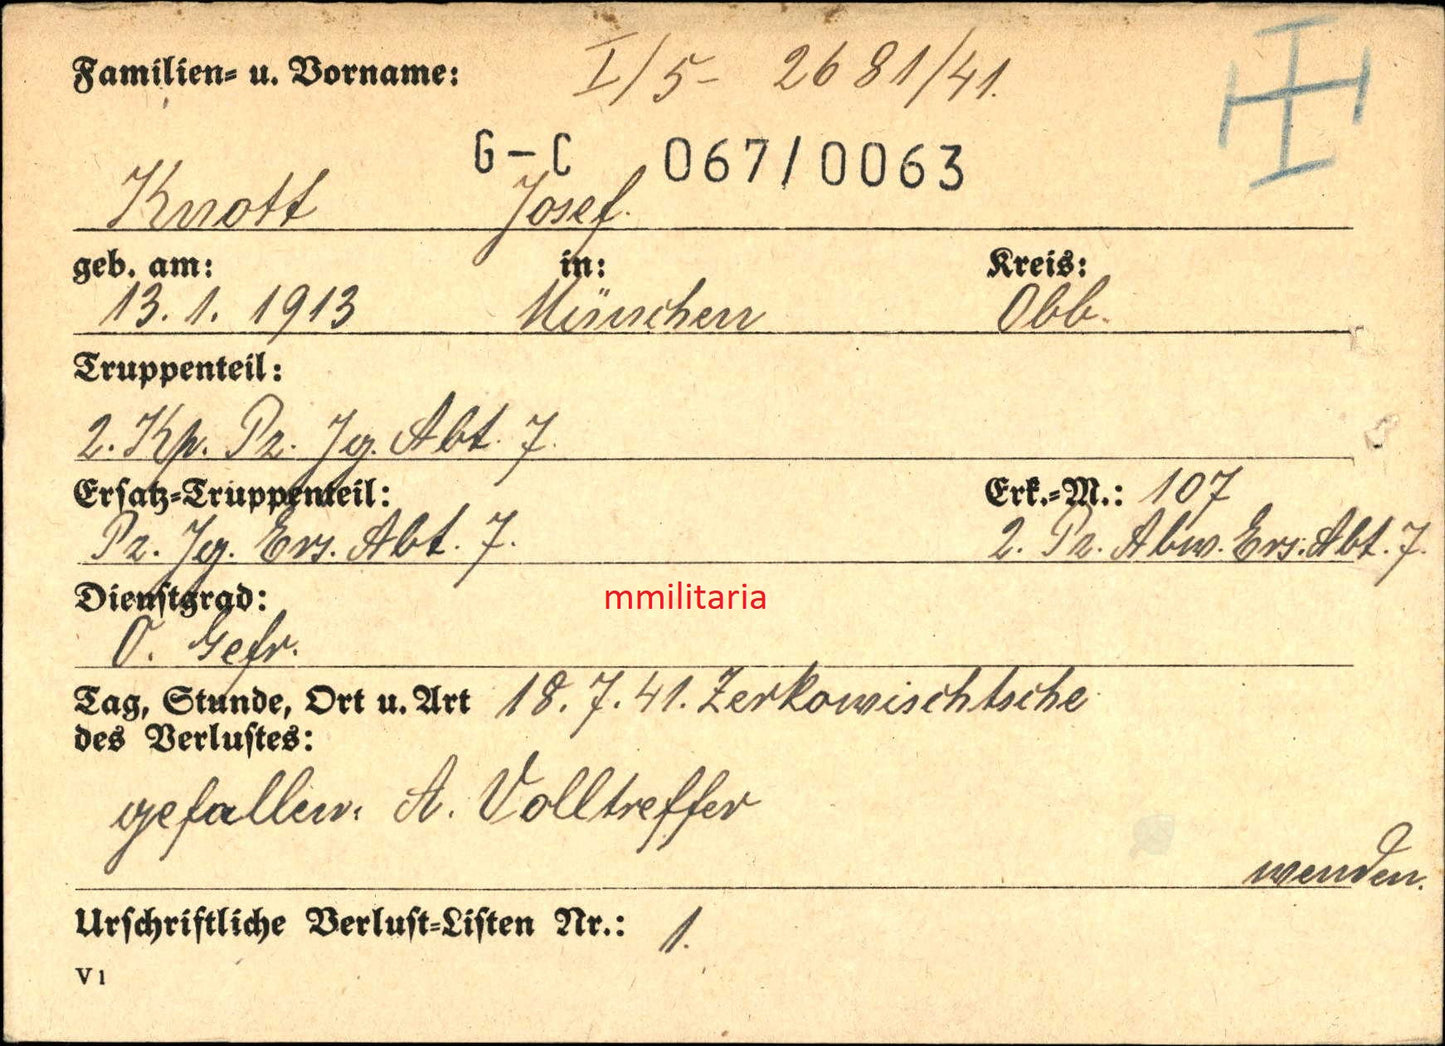 Familien- u. Vorname: I/5- 2681/41.
G-C 067/0063
Knott Josef.
geb. am: in: Kreis:
13. 1. 1913 München Obb.
Truppenteil:
2. Kp. Pz. Jg. Abt. 7.
Ersatz-Truppenteil: Erk.-M.: 107
Pz. Jg. Ers. Abt. 7. 2. Pz. Abw. Ers. Abt. 7.
mmilitaria
Dienstgrad:
O. Gefr.
Tag, Stunde, Ort u. Art 18. 7. 41. Zerkowischtsche
des Verlustes:
gefallen. A. Volltreffer
wenden.
Urschriftliche Verlust-Listen Nr.: 1.
V 1